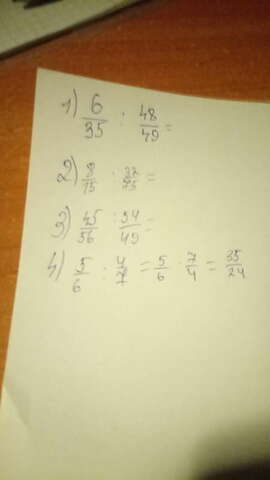 1) 6/35 : 48/49 =
2) 8/15 : 32/75 =
3) 45/56 : 54/49 =
4) 5/6 : 4/7 = 5/6 · 7/4 = 35/24